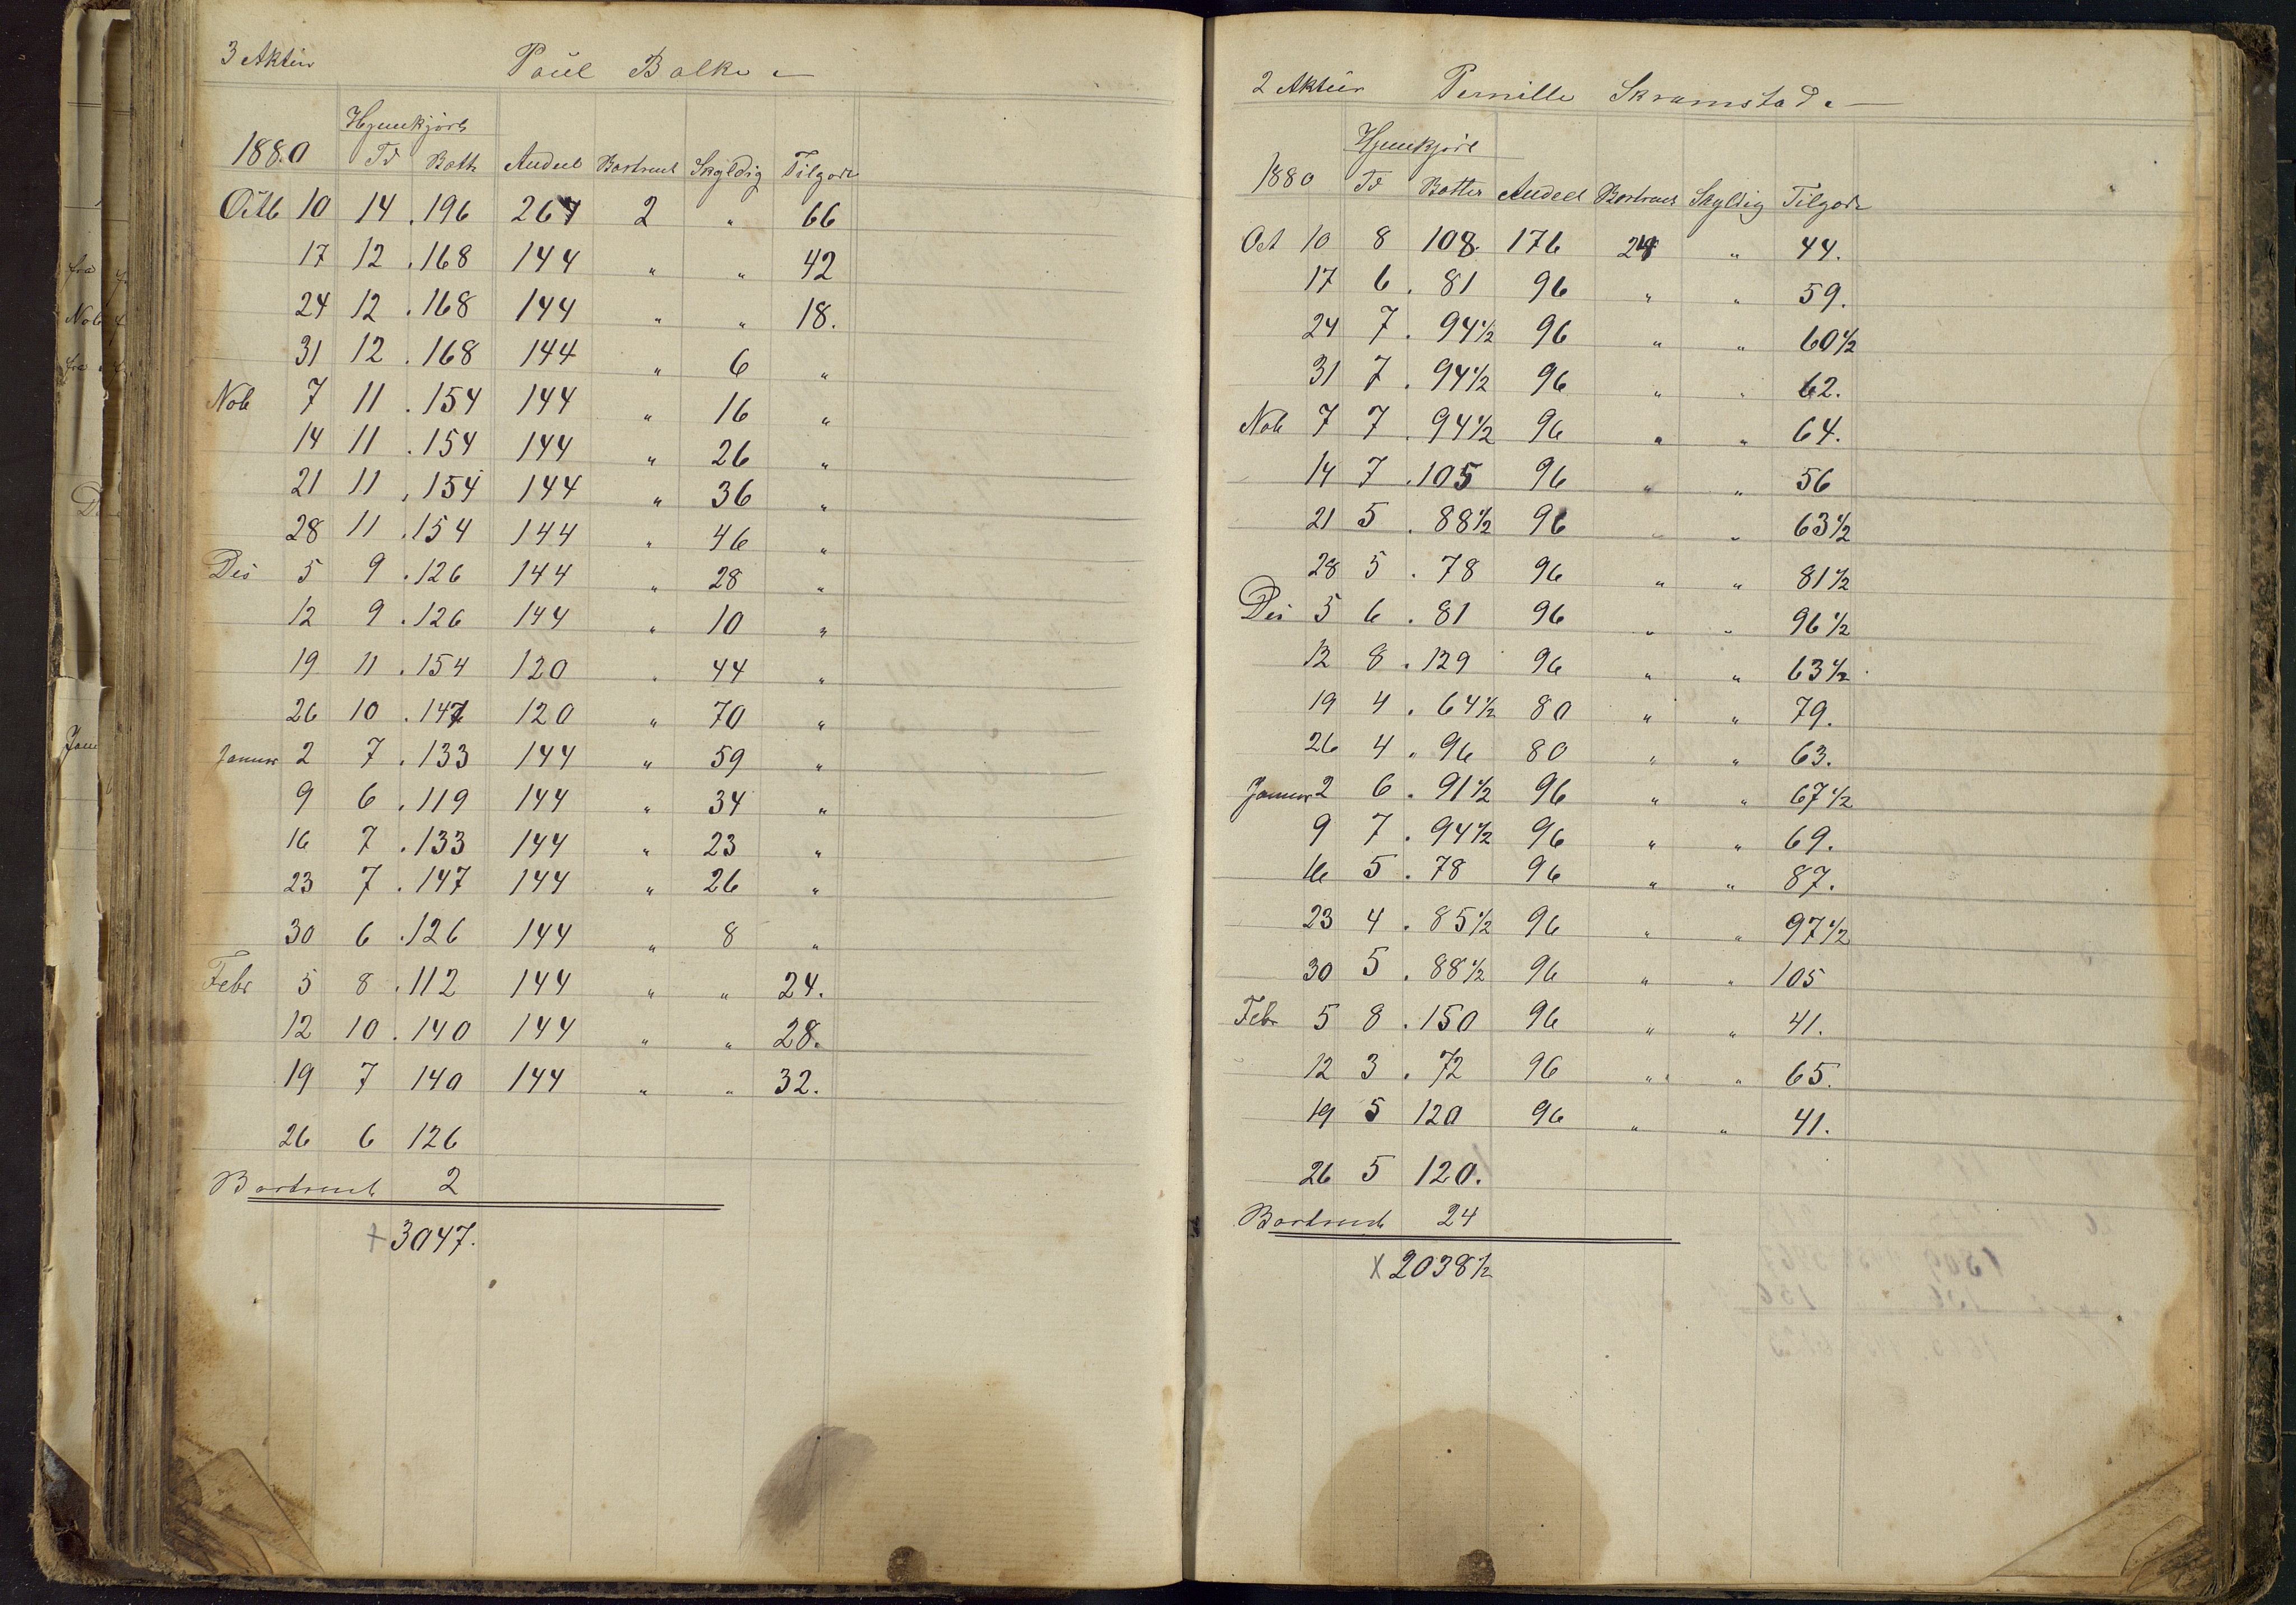 3 Aktier Paul Balke
Hjemkjørt
1880 Td Bøtt Andeel Bortrent Skyldig Tilgode
Octb 10 14 . 196 264 2 " 66
17 12 . 168 144 " " 42
24 12 . 168 144 " " 18.
31 12 . 168 144 " 6 "
Nob 7 11 . 154 144 " 16 "
14 11 . 154 144 " 26 "
21 11 . 154 144 " 36 "
28 11 . 154 144 " 46 "
Des 5 9 . 126 144 " 28 "
12 9 . 126 144 " 10 "
19 11 . 154 120 " 44 "
26 10 . 147 120 " 70 "
Januar 2 7 . 133 144 " 59 "
9 6 . 119 144 " 34 "
16 7 . 133 144 " 23 "
23 7 . 147 144 " 26 "
30 6 . 126 144 " 8 "
Febr 5 8 . 112 144 " " 24.
12 10 . 140 144 " " 28.
19 7 140 144 " " 32.
26 6 126
Bortrent 2
+ 3047.
2 Aktier Pernille Skramstad
Hjemkjørt
1880 Td Bøtter Andeel Bortrent Skyldig Tilgode
Oct 10 8 108. 176 24 " 44.
17 6 . 81 96 " " 59.
24 7 . 94 1/2 96 " " 60 1/2
31 7 . 94 1/2 96 " " 62.
Nob 7 7 . 94 1/2 96 " " 64.
14 7 . 105 96 " " 56
21 5 . 88 1/2 96 " " 63 1/2
28 5 . 78 96 " " 81 1/2
Des 5 6 . 81 96 " " 96 1/2
12 8 . 129 96 " " 63 1/2
19 4 . 64 1/2 80 " " 79.
26 4 . 96 80 " " 63.
Januar 2 6 . 91 1/2 96 " " 67 1/2
9 7 . 94 1/2 96 " " 69.
16 5 . 78 96 " " 87.
23 4 . 85 1/2 96 " " 97 1/2
30 5 . 88 1/2 96 " " 105
Febr 5 8 . 150 96 " " 41.
12 3 . 72 96 " " 65.
19 5 120 96 " " 41.
26 5 120.
Bortrent 24
x 2038 1/2